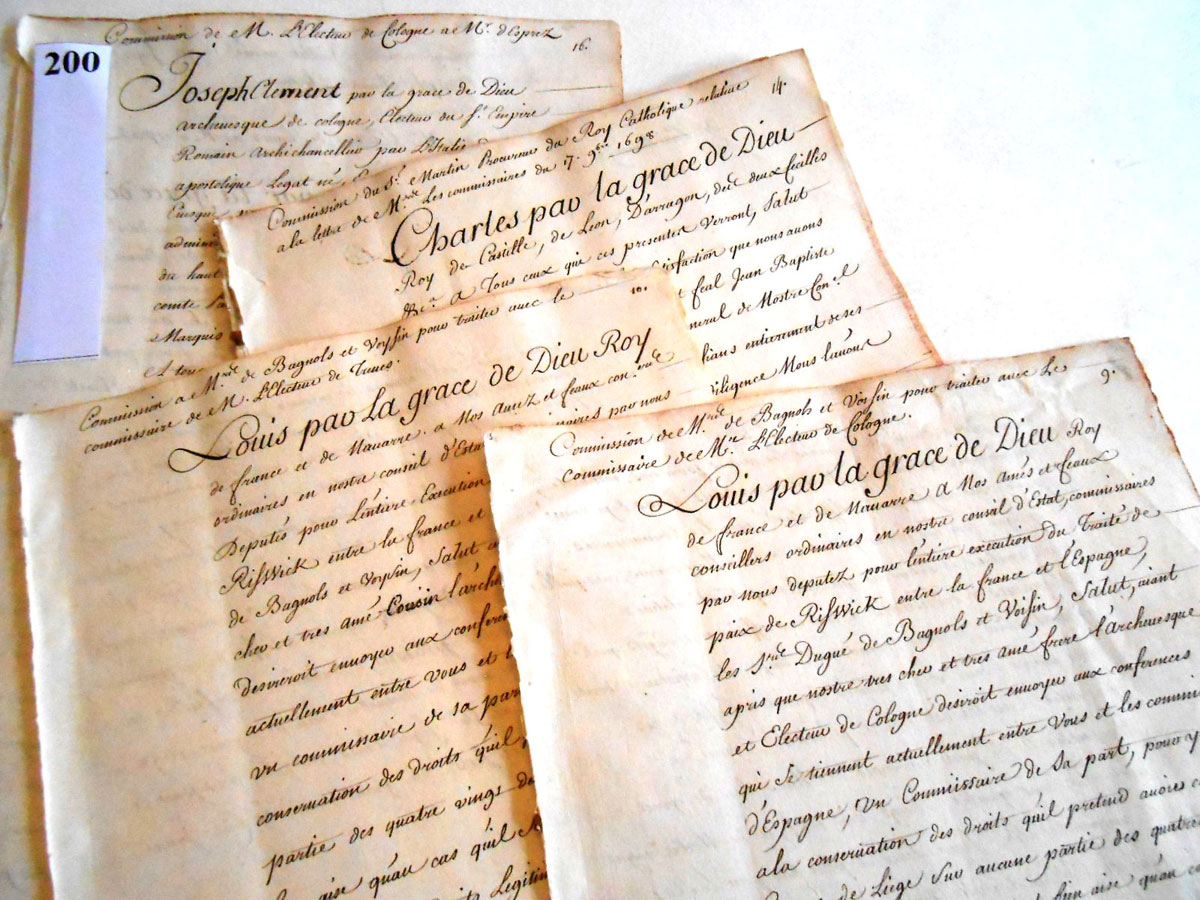 200
Commission de M. L'Electeur de Cologne a Mr. d'Esprez
16.
Joseph Clement par la grace de Dieu
archevesque de cologne, Electeur du St. Empire
Romain archichancellier par L'Italie
apostolique Legat né,
Evesque
admin
du haut
comte Pa
Marquis
et tou
Commission du Sr. Martin Procureur du Roy Catholique relative
14.
a la lettre de Mrs. Les commissaires du 7. 9bre 1698
Charles par la grace de Dieu
Roy de Castille, de Leon, D'arragon, des deux Cecilles
&c.a a Tous ceux qui ces presentes Verront, Salut
isfaction que nous avons
t feal Jean Baptiste
neral de Nostre Con.el
entierement de ses
iligence Nous l'avons
Commission a Mrs. de Bagnols et Voysin pour traiter avec le
10.
commissaire de M. L'Electeur de Treves.
Louis par La grace de Dieu Roy
de france et de Navarre. a Nos Amez et feaux con.ers
ordinaires en nostre conseil d'Estat
missaires par nous
Deputés pour L'entiere Execution
Risswick entre la france et
de Bagnols et Voysin, Salut a
cher et tres amé Cousin l'arche
desireroit envoyer aux confere
actuellement entre vous et l
un commissaire de sa par
conservation des droits qu'il
partie des quatre vings de
aise qu'au cas qu'il
Legitim
Commission de Mrs. de Bagnols et Voisin pour traiter avec Le
9.
commissaire de Mr. L'Electeur de Cologne.
Louis par la grace de Dieu Roy
de france et de Navarre a Nos Amés et feaux
conseillers ordinaires en nostre conseil d'Estat, commissaires
par nous deputez pour l'entiere execution du Traité de
paix de Risswick entre la france et l'Espagne,
les Srs. Dugué de Bagnols et Voisin, Salut, aiant
apris que nostre tres cher et tres amé frere l'archevesque
et Electeur de Cologne desiroit envoyer aux conferences
qui se tiennent actuellement entre Vous et les commi
d'Espagne, Un Commissaire de sa part, pour y
a la conservation des droits qu'il pretend avoir
de Liège sur aucune partie des quatre
bien aise qu'au c